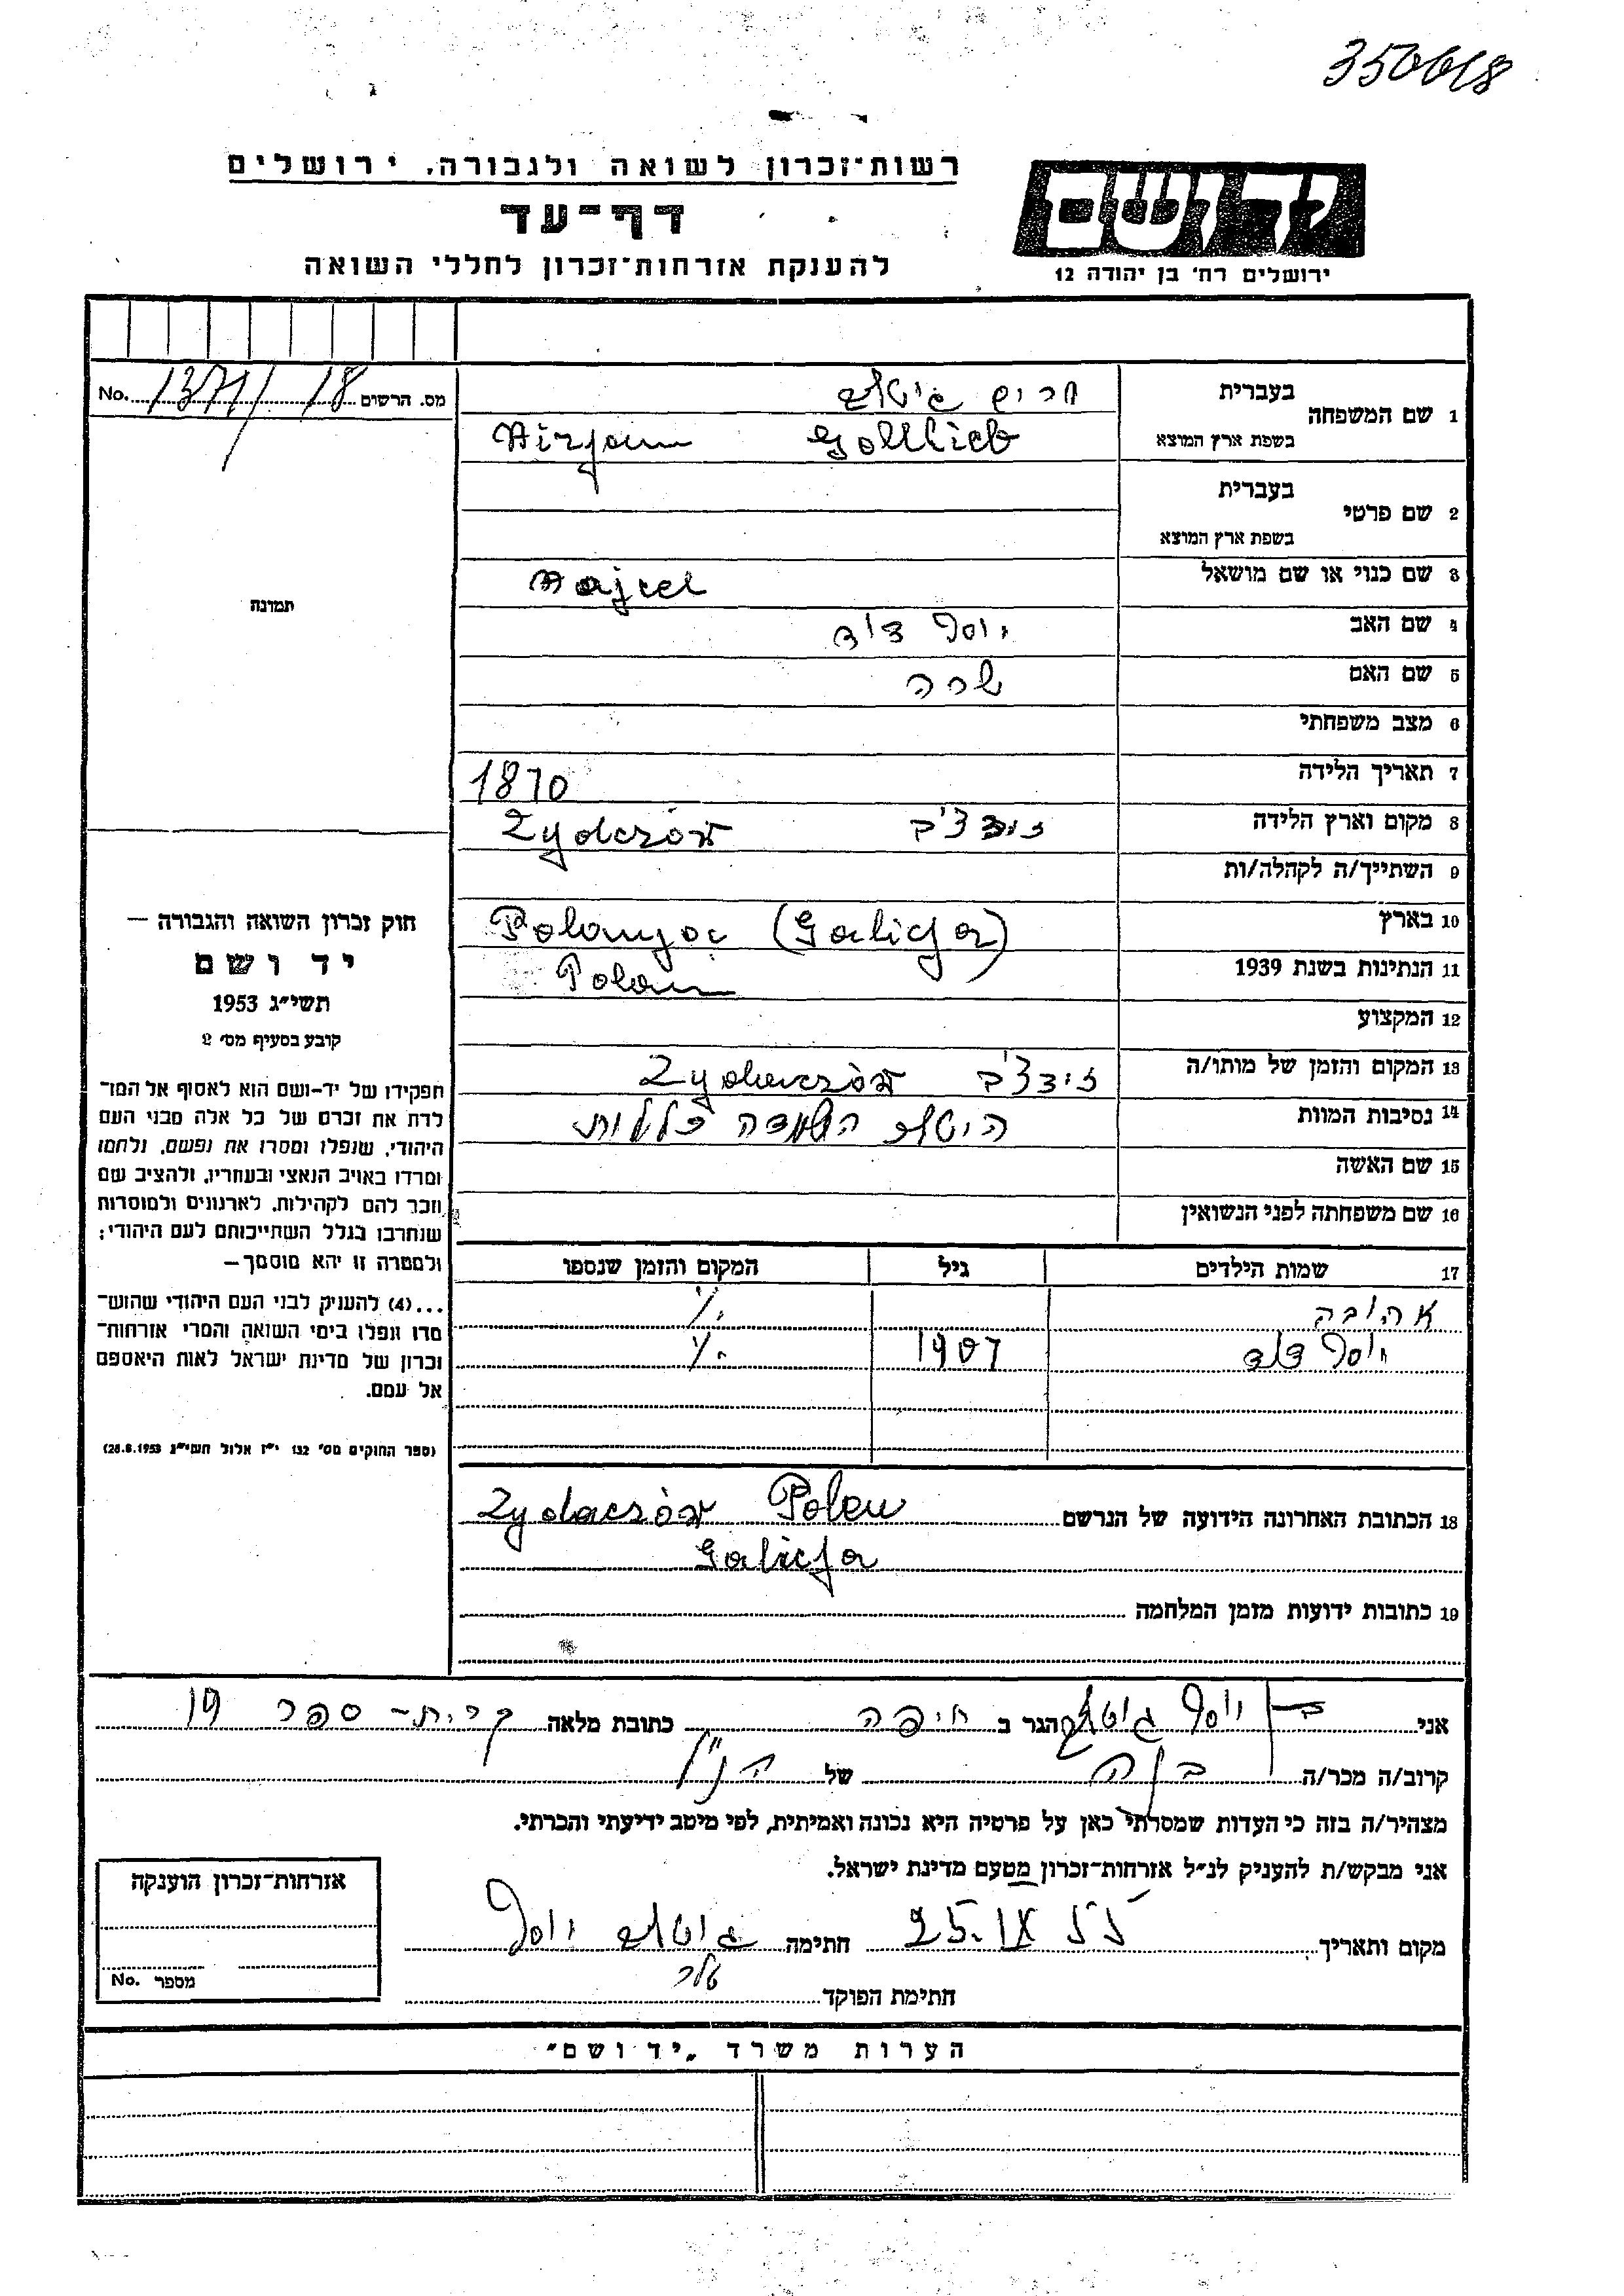 350618
רשות־זכרון לשואה ולגבורה, ירושלים
דף־עד
להענקת אזרחות־זכרון לחללי השואה
יד ושם
ירושלים רח' בן יהודה 12
No. 1371/18 מס. הרשום
תמונה
1 שם המשפחה
בעברית
בשפת ארץ המוצא Gottlieb
2 שם פרטי
בעברית
בשפת ארץ המוצא
3 שם כנוי או שם מושאל
4 שם האב יוסף דוד
5 שם האם שרה
6 מצב משפחתי
7 תאריך הלידה 1870
8 מקום וארץ הלידה
9 השתייך/ה לקהלה/ות
10 בארץ (Galicja)
11 הנתינות בשנת 1939 Polen
12 המקצוע
13 המקום והזמן של מותו/ה
14 נסיבות המוות השמדה כללית
15 שם האשה
16 שם משפחתה לפני הנשואין
17 שמות הילדים גיל המקום והזמן שנספו
אהובה ״/.
יוסף דוד 1907 ״/.
18 הכתובת האחרונה הידועה של הנרשם Polen
Galicja
19 כתובות ידועות מזמן המלחמה
חוק זכרון השואה והגבורה —
יד ושם
תשי״ג 1953
קובע בסעיף מס׳ 2
תפקידו של יד-ושם הוא לאסוף אל המו־
לדת את זכרם של כל אלה מבני העם
היהודי, שנפלו ומסרו את נפשם, נלחמו
ומרדו באויב הנאצי ובעוזריו, ולהציב שם
וזכר להם לקהילות, לארגונים ולמוסדות
שנחרבו בגלל השתייכותם לעם היהודי;
ולמטרה זו יהא מוסמך—
...(4) להעניק לבני העם היהודי שהוש־
מדו ונפלו בימי השואה והמרי אזרחות־
זכרון של מדינת ישראל לאות היאספם
אל עמם.
(ספר החוקים מס׳ 132 י״ז אלול תשי״ג 28.8.1953)
אני יוסף גוטליב הגר ב חיפה כתובת מלאה קרית־ספר 19
קרוב/ה מכר/ה של הנ״ל
מצהיר/ה בזה כי העדות שמסרתי כאן על פרטיה היא נכונה ואמיתית, לפי מיטב ידיעתי והכרתי.
אני מבקש/ת להעניק לנ״ל אזרחות־זכרון מטעם מדינת ישראל.
מקום ותאריך 25. IX 55 חתימה גוטליב יוסף
חתימת הפוקד
אזרחות־זכרון הוענקה
No. מספר
הערות משרד „יד ושם״